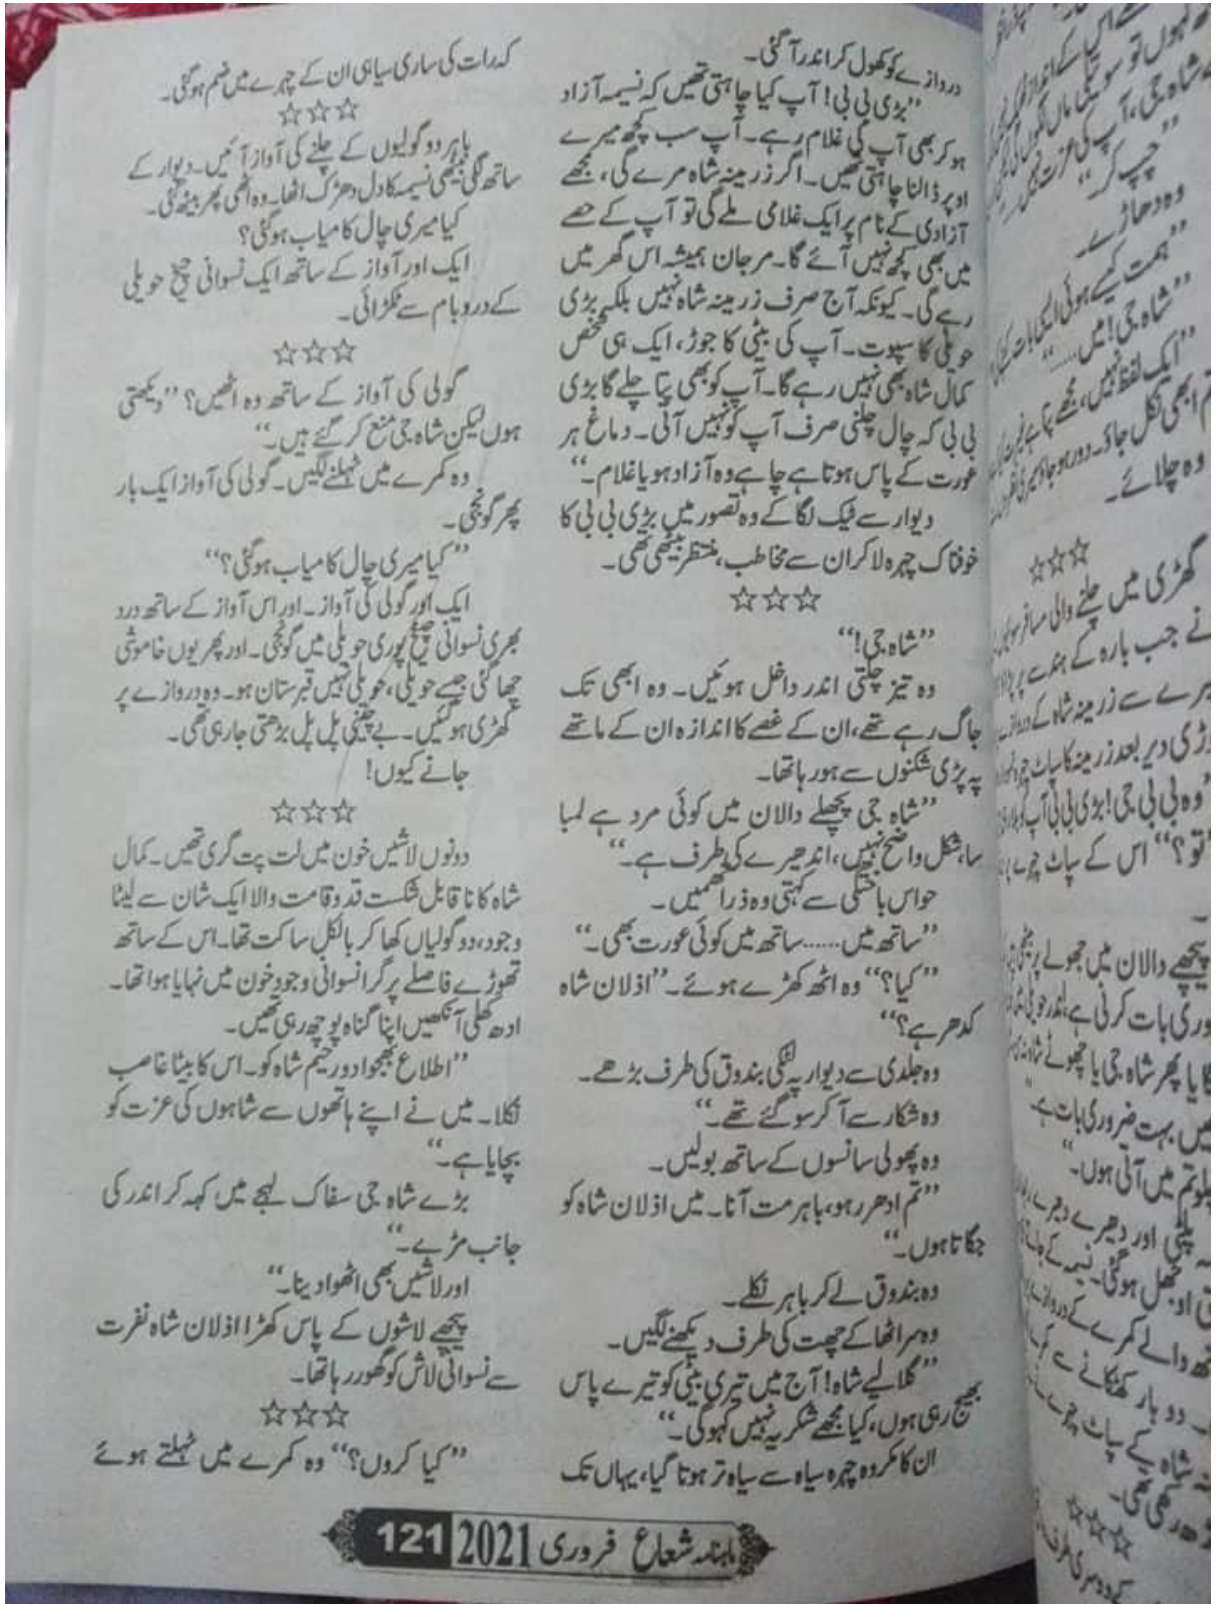 دروازے کو کھول کر اندر آ گئی۔
”بڑی بی بی! آپ کیا چاہتی تھیں کہ نسیمہ آزاد
ہو کر بھی آپ کی غلام رہے۔ آپ سب کچھ میرے
اوپر ڈالنا چاہتی تھیں۔ اگر زرمینہ شاہ مرے گی، مجھے
آزادی کے نام پر ایک غلامی ملے گی تو آپ کے حصے
میں بھی کچھ نہیں آئے گا۔ مرجان ہمیشہ اس گھر میں
رہے گی۔ کیونکہ آج صرف زرمینہ شاہ نہیں بلکہ بڑی
حویلی کا سپوت۔ آپ کی بیٹی کا جوڑ، ایک ہی شخص
کمال شاہ بھی نہیں رہے گا۔ آپ کو بھی پتا چلے گا بڑی
بی بی کہ چال چلنی صرف آپ کو نہیں آتی۔ دماغ ہر
عورت کے پاس ہوتا ہے چاہے وہ آزاد ہو یا غلام۔“
دیوار سے ٹیک لگا کے وہ تصور میں بڑی بی بی کا
خوفناک چہرہ لا کر ان سے مخاطب، منتظر بیٹھی تھی۔
☆☆☆
”شاہ جی!“
وہ تیز چلتی اندر داخل ہوئیں۔ وہ ابھی تک
جاگ رہے تھے، ان کے غصے کا اندازہ ان کے ماتھے
پہ پڑی شکنوں سے ہو رہا تھا۔
”شاہ جی پچھلے دالان میں کوئی مرد ہے لمبا
سا، شکل واضح نہیں، اندھیرے کی طرف ہے۔“
حواس باختگی سے کہتی وہ ذرا تھمیں۔
”ساتھ میں...... ساتھ میں کوئی عورت بھی۔“
”کیا؟“ وہ اٹھ کھڑے ہوئے۔ ”اذلان شاہ
کدھر ہے؟“
وہ جلدی سے دیوار پہ لٹکی بندوق کی طرف بڑھے۔
وہ شکار سے آ کر سو گئے تھے۔“
وہ پھولی سانسوں کے ساتھ بولیں۔
”تم ادھر رہو، باہر مت آنا۔ میں اذلان شاہ کو
جگاتا ہوں۔“
وہ بندوق لے کر باہر نکلے۔
وہ سر اٹھا کے چھت کی طرف دیکھنے لگیں۔
”گلالیے شاہ! آج میں تیری بیٹی کو تیرے پاس
بھیج رہی ہوں، کیا مجھے شکریہ نہیں کہو گی۔“
ان کا مکروہ چہرہ سیاہ سے سیاہ تر ہوتا گیا، یہاں تک
کہ رات کی ساری سیاہی ان کے چہرے میں ضم ہو گئی۔
☆☆☆
باہر دو گولیوں کے چلنے کی آواز آئیں۔ دیوار کے
ساتھ لگی بیٹھی نسیمہ کا دل دھڑک اٹھا۔ وہ اٹھی پھر بیٹھ گئی۔
کیا میری چال کامیاب ہو گئی؟
ایک اور آواز کے ساتھ ایک نسوانی چیخ حویلی
کے در و بام سے ٹکرائی۔
☆☆☆
گولی کی آواز کے ساتھ وہ اٹھیں؟ ”دیکھتی
ہوں لیکن شاہ جی منع کر گئے ہیں۔“
وہ کمرے میں ٹہلنے لگیں۔ گولی کی آواز ایک بار
پھر گونجی۔
”کیا میری چال کامیاب ہو گئی؟“
ایک اور گولی کی آواز۔ اور اس آواز کے ساتھ درد
بھری نسوانی چیخ پوری حویلی میں گونجی۔ اور پھر یوں خاموشی
چھا گئی جیسے حویلی، حویلی نہیں قبرستان ہو۔ وہ دروازے پر
کھڑی ہو گئیں۔ بے چینی پل پل بڑھتی جا رہی تھی۔
جانے کیوں!
☆☆☆
دونوں لاشیں خون میں لت پت گری تھیں۔ کمال
شاہ کا ناقابل شکست قد و قامت والا ایک شان سے لیٹا
وجود، دو گولیاں کھا کر بالکل ساکت تھا۔ اس کے ساتھ
تھوڑے فاصلے پر گرا نسوانی وجود خون میں نہایا ہوا تھا۔
ادھ کھلی آنکھیں اپنا گناہ پوچھ رہی تھیں۔
”اطلاع بھجوا دو رحیم شاہ کو۔ اس کا بیٹا غاصب
نکلا۔ میں نے اپنے ہاتھوں سے شاہوں کی عزت کو
بچایا ہے۔“
بڑے شاہ جی سفاک لہجے میں کہہ کر اندر کی
جانب مڑے۔“
اور لاشیں بھی اٹھوا دینا۔“
پیچھے لاشوں کے پاس کھڑا اذلان شاہ نفرت
سے نسوانی لاش کو گھور رہا تھا۔
☆☆☆
”کیا کروں؟“ وہ کمرے میں ٹہلتے ہوئے
ماہنامہ شعاع فروری 2021 121
”چپ کر“
وہ دھاڑے۔
”شاہ جی! میں......“
وہ چلائے۔
☆☆☆
گھڑی میں چلنے والی
نے جب بارہ کے ہندسے پر
تو؟“ اس کے سپاٹ چہرے
پیچھے دالان میں جھولے پر بیٹھی
میں بہت ضروری بات ہے۔
چلو تم میں آتی ہوں۔“
☆☆☆